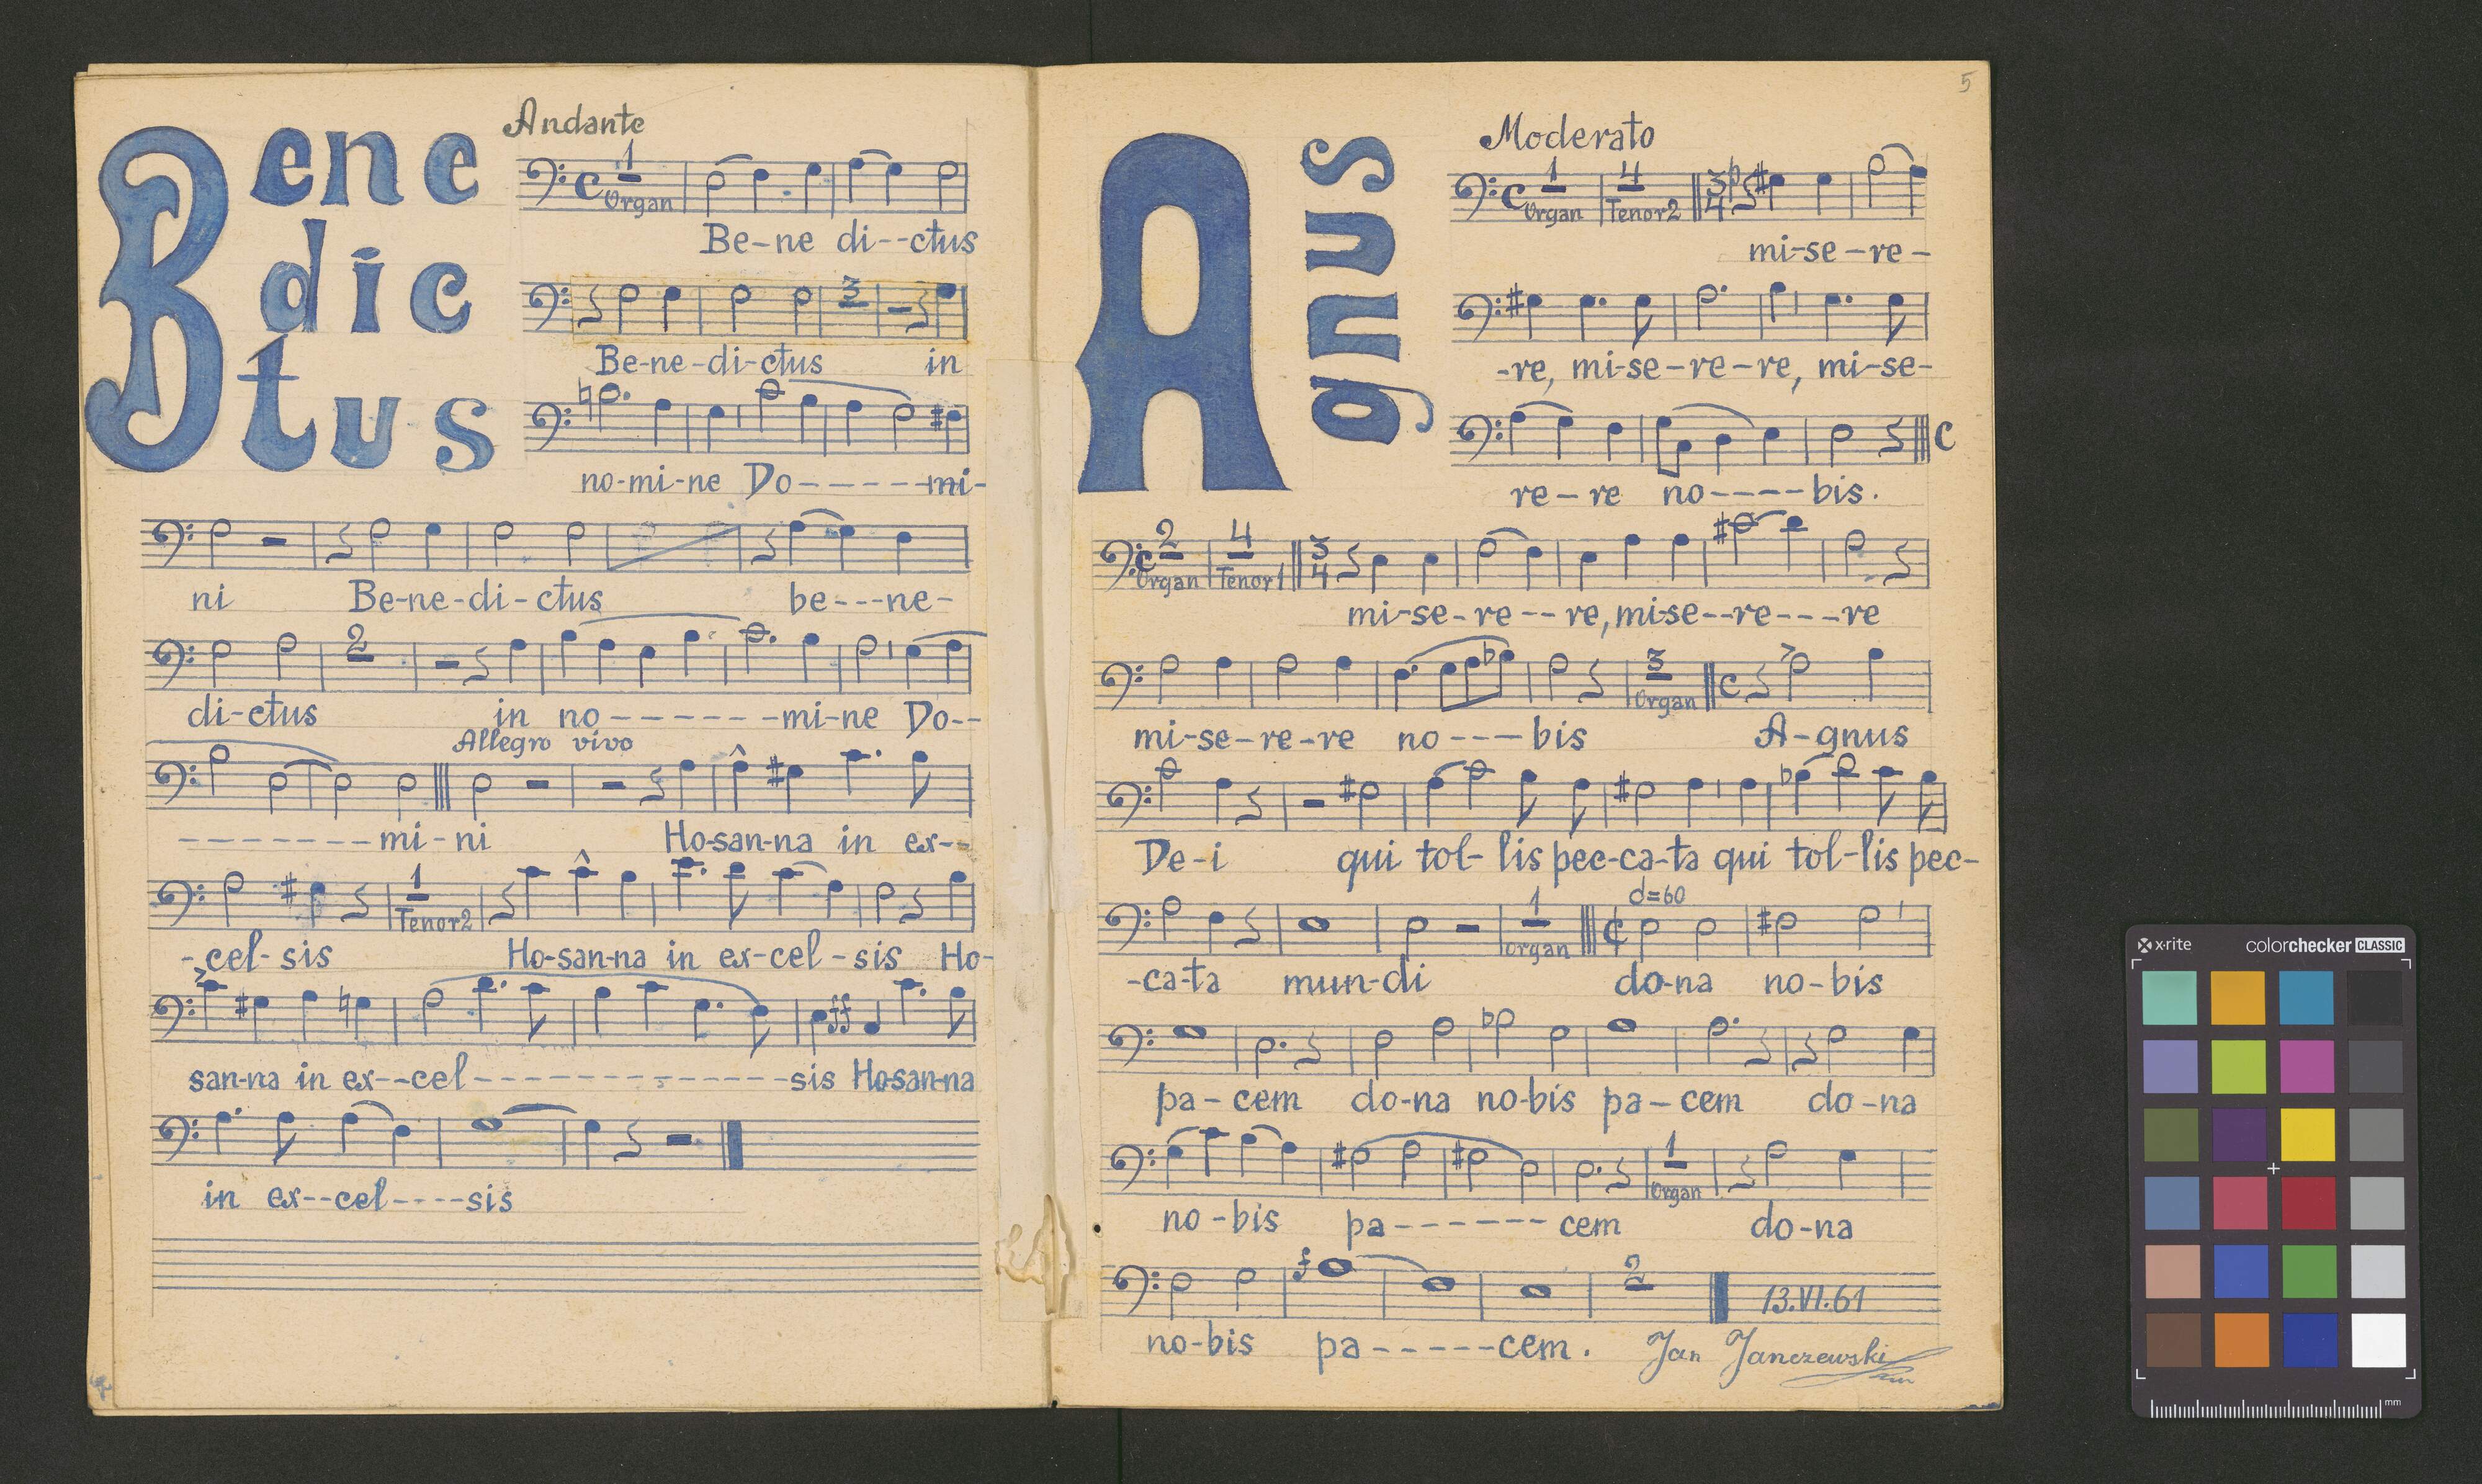 Benedictus
Andante
1
Organ
Be-ne di--ctus
3
Be-ne-di-ctus in
no-mi-ne Do------mi-
ni Be-ne-di-ctus be---ne-
2
di-ctus in no-------mi-ne Do--
Allegro vivo
--------mi-ni Ho-san-na in ex--
1
Tenor2
-cel-sis Ho-san-na in ex-cel-sis Ho-
ff
san-na in ex--cel---------------sis Ho-san-na
in ex--cel----sis
5
Agnus
Moderato
1 4
C Organ Tenor2 3/4 p
mi-se-re-
-re, mi-se-re-re, mi-se-
C
re-re no----bis.
2 4
C Organ Tenor1 3/4
mi-se-re--re, mi-se--re---re
3
Organ C
mi-se-re-re no---bis A-gnus
De-i qui tol-lis pec-ca-ta qui tol-lis pec-
d=60
1
Organ
-ca-ta mun-di do-na no-bis
pa-cem do-na no-bis pa-cem do-na
1
Organ
no-bis pa------cem do-na
f 2
13.VI.61
no-bis pa-----cem. Jan Janczewski
x-rite colorchecker CLASSIC
mm